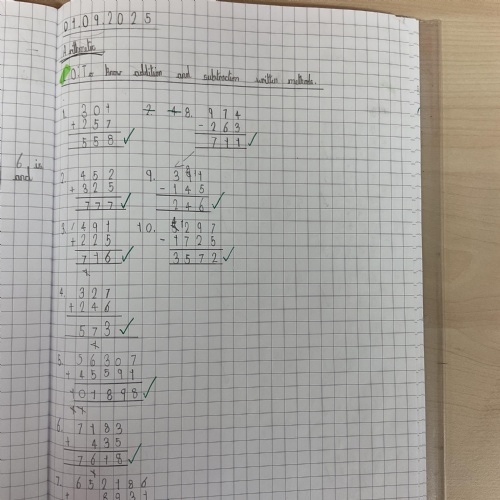 01.09.2025
Arithmetic
LO: To know addition and subtraction written methods.
1. 301
+ 257
558
2. 452
+ 325
777
3. 491
+ 225
716
4. 327
+ 246
573
5. 56307
+ 45591
101898
6. 7183
+ 435
7618
7. 652186
+ 8931
8. 974
- 263
711
9. 391
- 145
246
10. 5297
- 1725
3572
6 is
and